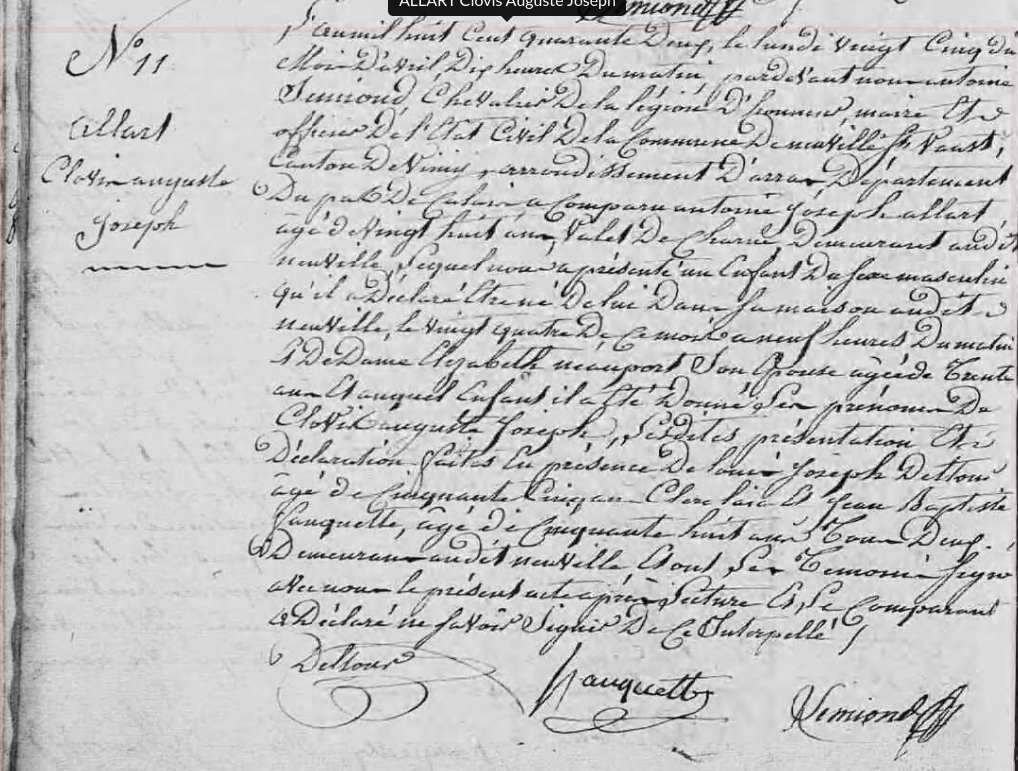 ALLART Clovis Auguste Joseph
N° 11
allart
Clovis auguste
Joseph
L'an mil huit Cent quarante Deux, le lundi vingt Cinq du
Mois D'avril, Dix heures Du matin, pardevant nous antoine
Semiond, Chevalier De la légion D'honneur, maire Et
officier De l'Etat Civil De la Commune De neuville St Vaast,
Canton De Vimy, arrondissement D'arras, Département
Du pas De Calais a Comparu antoine Joseph allart
âgé de vingt huit ans, Valet De Charrue, Demeurant audit
neuville, Lequel nous a présenté un Enfant Du Sexe masculin
qu'il a Déclaré Etre né De lui Dans Sa maison audit
neuville, le vingt quatre De Ce mois a neuf heures Du matin
& De Dame Elizabeth Son Epouse âgée de Trente
ans Et auquel Enfant il a été Donné Les prénoms De
Clovis auguste Joseph, Lesdites présentation Et
Déclaration faites En présence De louis Joseph Dettour
âgé de Cinquante Cinq ans Clerc laic Et Jean Baptiste
hauquette, âgé de Cinquante huit ans Tous Deux
Demeurans audit neuville Et ont Les Temoins Signé
avec nous le présent acte après Lecture Et Le Comparant
a Déclaré ne Savoir Signer De Ce Interpellé
Dettour
hauquette
Semiond